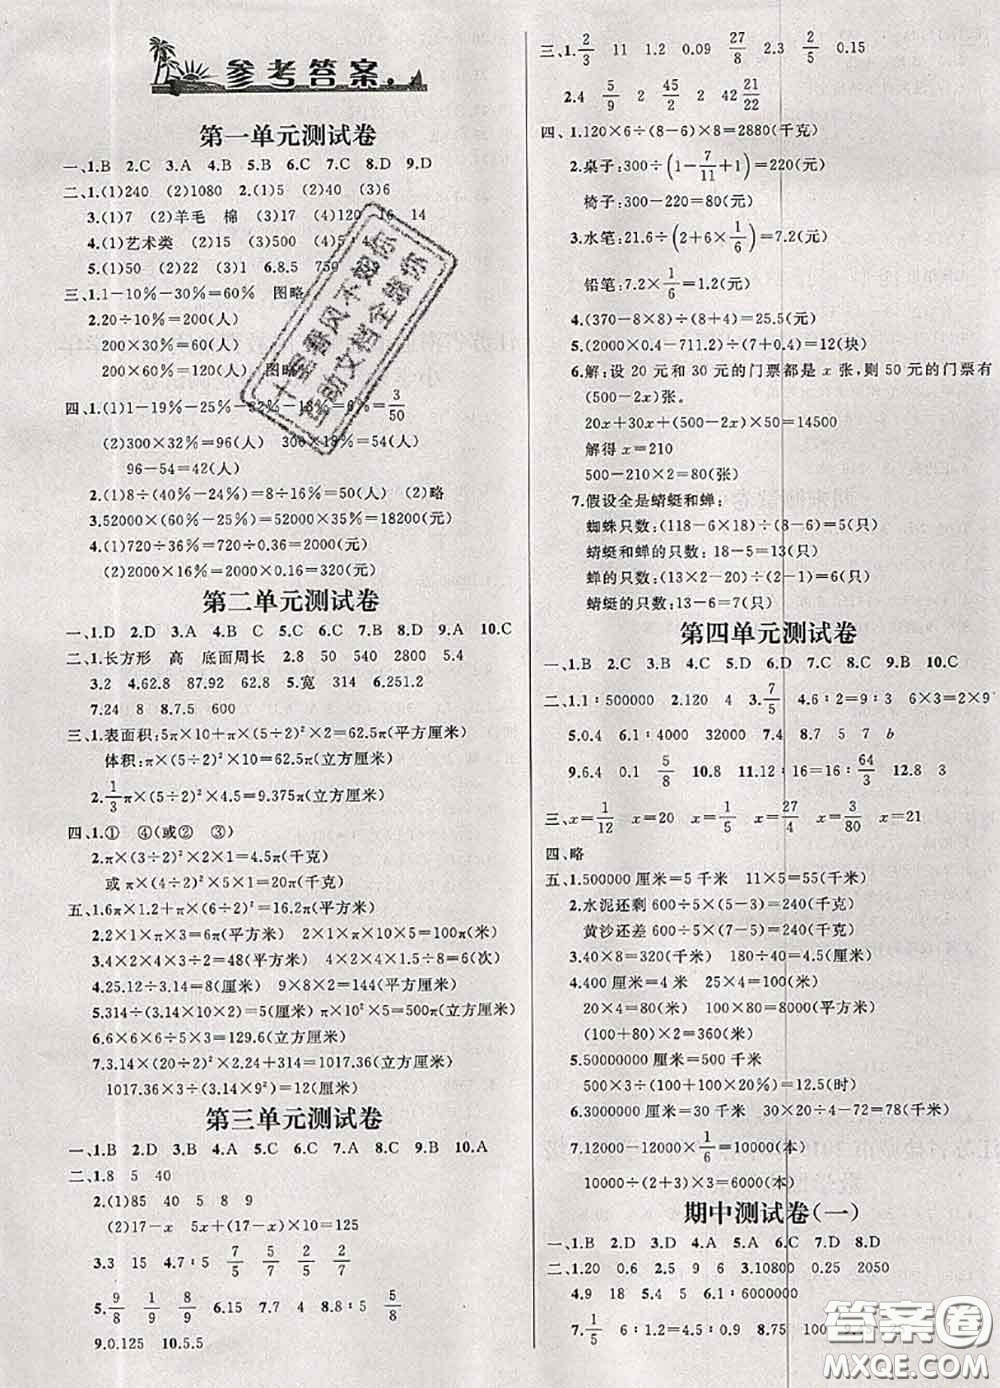 参考答案
第一单元测试卷
一、1.B 2.C 3.A 4.B 5.B 6.C 7.C 8.D 9.D
二、1.(1)240 (2)1080 2.(1)5 (2)40 (3)6
3.(1)7 (2)羊毛 棉 (3)17 (4)120 16 14
4.(1)艺术类 (2)15 (3)500 (4)5
5.(1)50 (2)22 (3)1 6.8.5 750
三、1.1－10％－30％＝60％ 图略
2.20÷10％＝200(人)
200×30％＝60(人)
200×60％＝120(人) 图略
四、1.(1)1－19％－25％－32％－18％＝6％＝3/50
(2)300×32％＝96(人) 300×18％＝54(人)
96－54＝42(人)
2.(1)8÷(40％－24％)＝8÷16％＝50(人) (2)略
3.52000×(60％－25％)＝52000×35％＝18200(元)
4.(1)720÷36％＝720÷0.36＝2000(元)
(2)2000×16％＝2000×0.16＝320(元)
第二单元测试卷
一、1.D 2.D 3.A 4.B C 5.C 6.C 7.B 8.D 9.A 10.C
二、1.长方形 高 底面周长 2.8 50 540 2800 5.4
3.2 4.62.8 87.92 62.8 5.宽 314 6.251.2
7.24 8 8.7.5 600
三、1.表面积:5π×10＋π×(5÷2)²×2＝62.5π(平方厘米)
体积:π×(5÷2)²×10＝62.5π(立方厘米)
2.1/3π×(5÷2)²×4.5＝9.375π(立方厘米)
四、1.① ④(或② ③)
2.π×(3÷2)²×2×1＝4.5π(千克)
或π×(4÷2)²×5×1＝20π(千克)
五、1.6π×1.2＋π×(6÷2)²＝16.2π(平方米)
2.2×1×π×3＝6π(平方米) 2×1×π×10×5＝100π(平方米)
3.4×2×4×2×1.5＝48(平方米) 4×2×4×1.5÷8＝6(次)
4.25.12÷3.14＝8(厘米) 9×8×2＝144(平方厘米)
5.314÷(3.14×10×2)＝5(厘米) π×10²×5＝500π(立方厘米)
6.6×6×6÷5×3＝129.6(立方厘米)
7.3.14×(20÷2)²×2.24＋314＝1017.36(立方厘米)
1017.36×3÷(3.14×9²)＝12(厘米)
第三单元测试卷
一、1.B 2.D 3.B 4.A 5.C 6.C 7.A 8.C 9.B 10.A
二、1.8 5 40
2.(1)85 40 5 8 9
(2)17－x 5x＋(17－x)×10＝125
3.3 15 4.7:5 7/5 5/7 2/7 2/5
5.9/8 1/9 8/9 6.15 7.7 4 8.8:5 5/8
9.0.125 10.5.5
三、1.2/3 11 1.2 0.09 27/8 2.3 2/5 0.15
2.4 5/9 2 45/2 2 42 21/22
四、1.120×6÷(8－6)×8＝2880(千克)
2.桌子:300÷(1－7/11＋1)＝220(元)
椅子:300－220＝80(元)
3.水笔:21.6÷(2＋6×1/6)＝7.2(元)
铅笔:7.2×1/6＝1.2(元)
4.(370－8×8)÷(8＋4)＝25.5(元)
5.(2000×0.4－711.2)÷(7＋0.4)＝12(块)
6.解:设 20 元和 30 元的门票都是 x 张,则 50 元的门票有
(500－2x)张。
20x＋30x＋(500－2x)×50＝14500
解得 x＝210
500－210×2＝80(张)
7.假设全是蜻蜓和蝉:
蜘蛛只数:(118－6×18)÷(8－6)＝5(只)
蜻蜓和蝉的只数:18－5＝13(只)
蝉的只数:(13×2－20)÷(2－1)＝6(只)
蜻蜓的只数:13－6＝7(只)
第四单元测试卷
一、1.B 2.C 3.B 4.B 5.D 6.D 7.C 8.C 9.B 10.C
二、1.1:500000 2.120 4 3.7/5 4.6:2＝9:3 6×3＝2×9
5.0.4 6.1:4000 32000 7.4 8.7 5 7 b
9.6.4 0.1 5/8 10.8 11.12:16＝16:64/3 12.8 3
三、x＝1/12 x＝20 x＝1/5 x＝27/4 x＝3/80 x＝21
四、略
五、1.500000 厘米＝5 千米 11×5＝55(千米)
2.水泥还剩 600÷5×(5－3)＝240(千克)
黄沙还差 600÷5×(7－5)＝240(千克)
3.40×8＝320(千米) 180÷40＝4.5(厘米)
4.400 厘米＝4 米 25×4＝100(米)
20×4＝80(米) 100×80＝8000(平方米)
(100＋80)×2＝360(米)
5.50000000 厘米＝500 千米
500×3÷(100＋100×20％)＝12.5(时)
6.3000000 厘米＝30 千米 30×20÷4－72＝78(千米)
7.12000－12000×1/6＝10000(本)
10000÷(2＋3)×3＝6000(本)
期中测试卷(一)
一、1.B 2.D 3.D 4.A 5.A 6.C 7.D 8.D
二、1.20 0.6 2.54 9 6 3.10800 0.25 2050
4.9 18 5.4 5 6.1:6000000
7.1/5 6:1.2＝4.5:0.9 8.75 100
答案圈
MXQE.COM